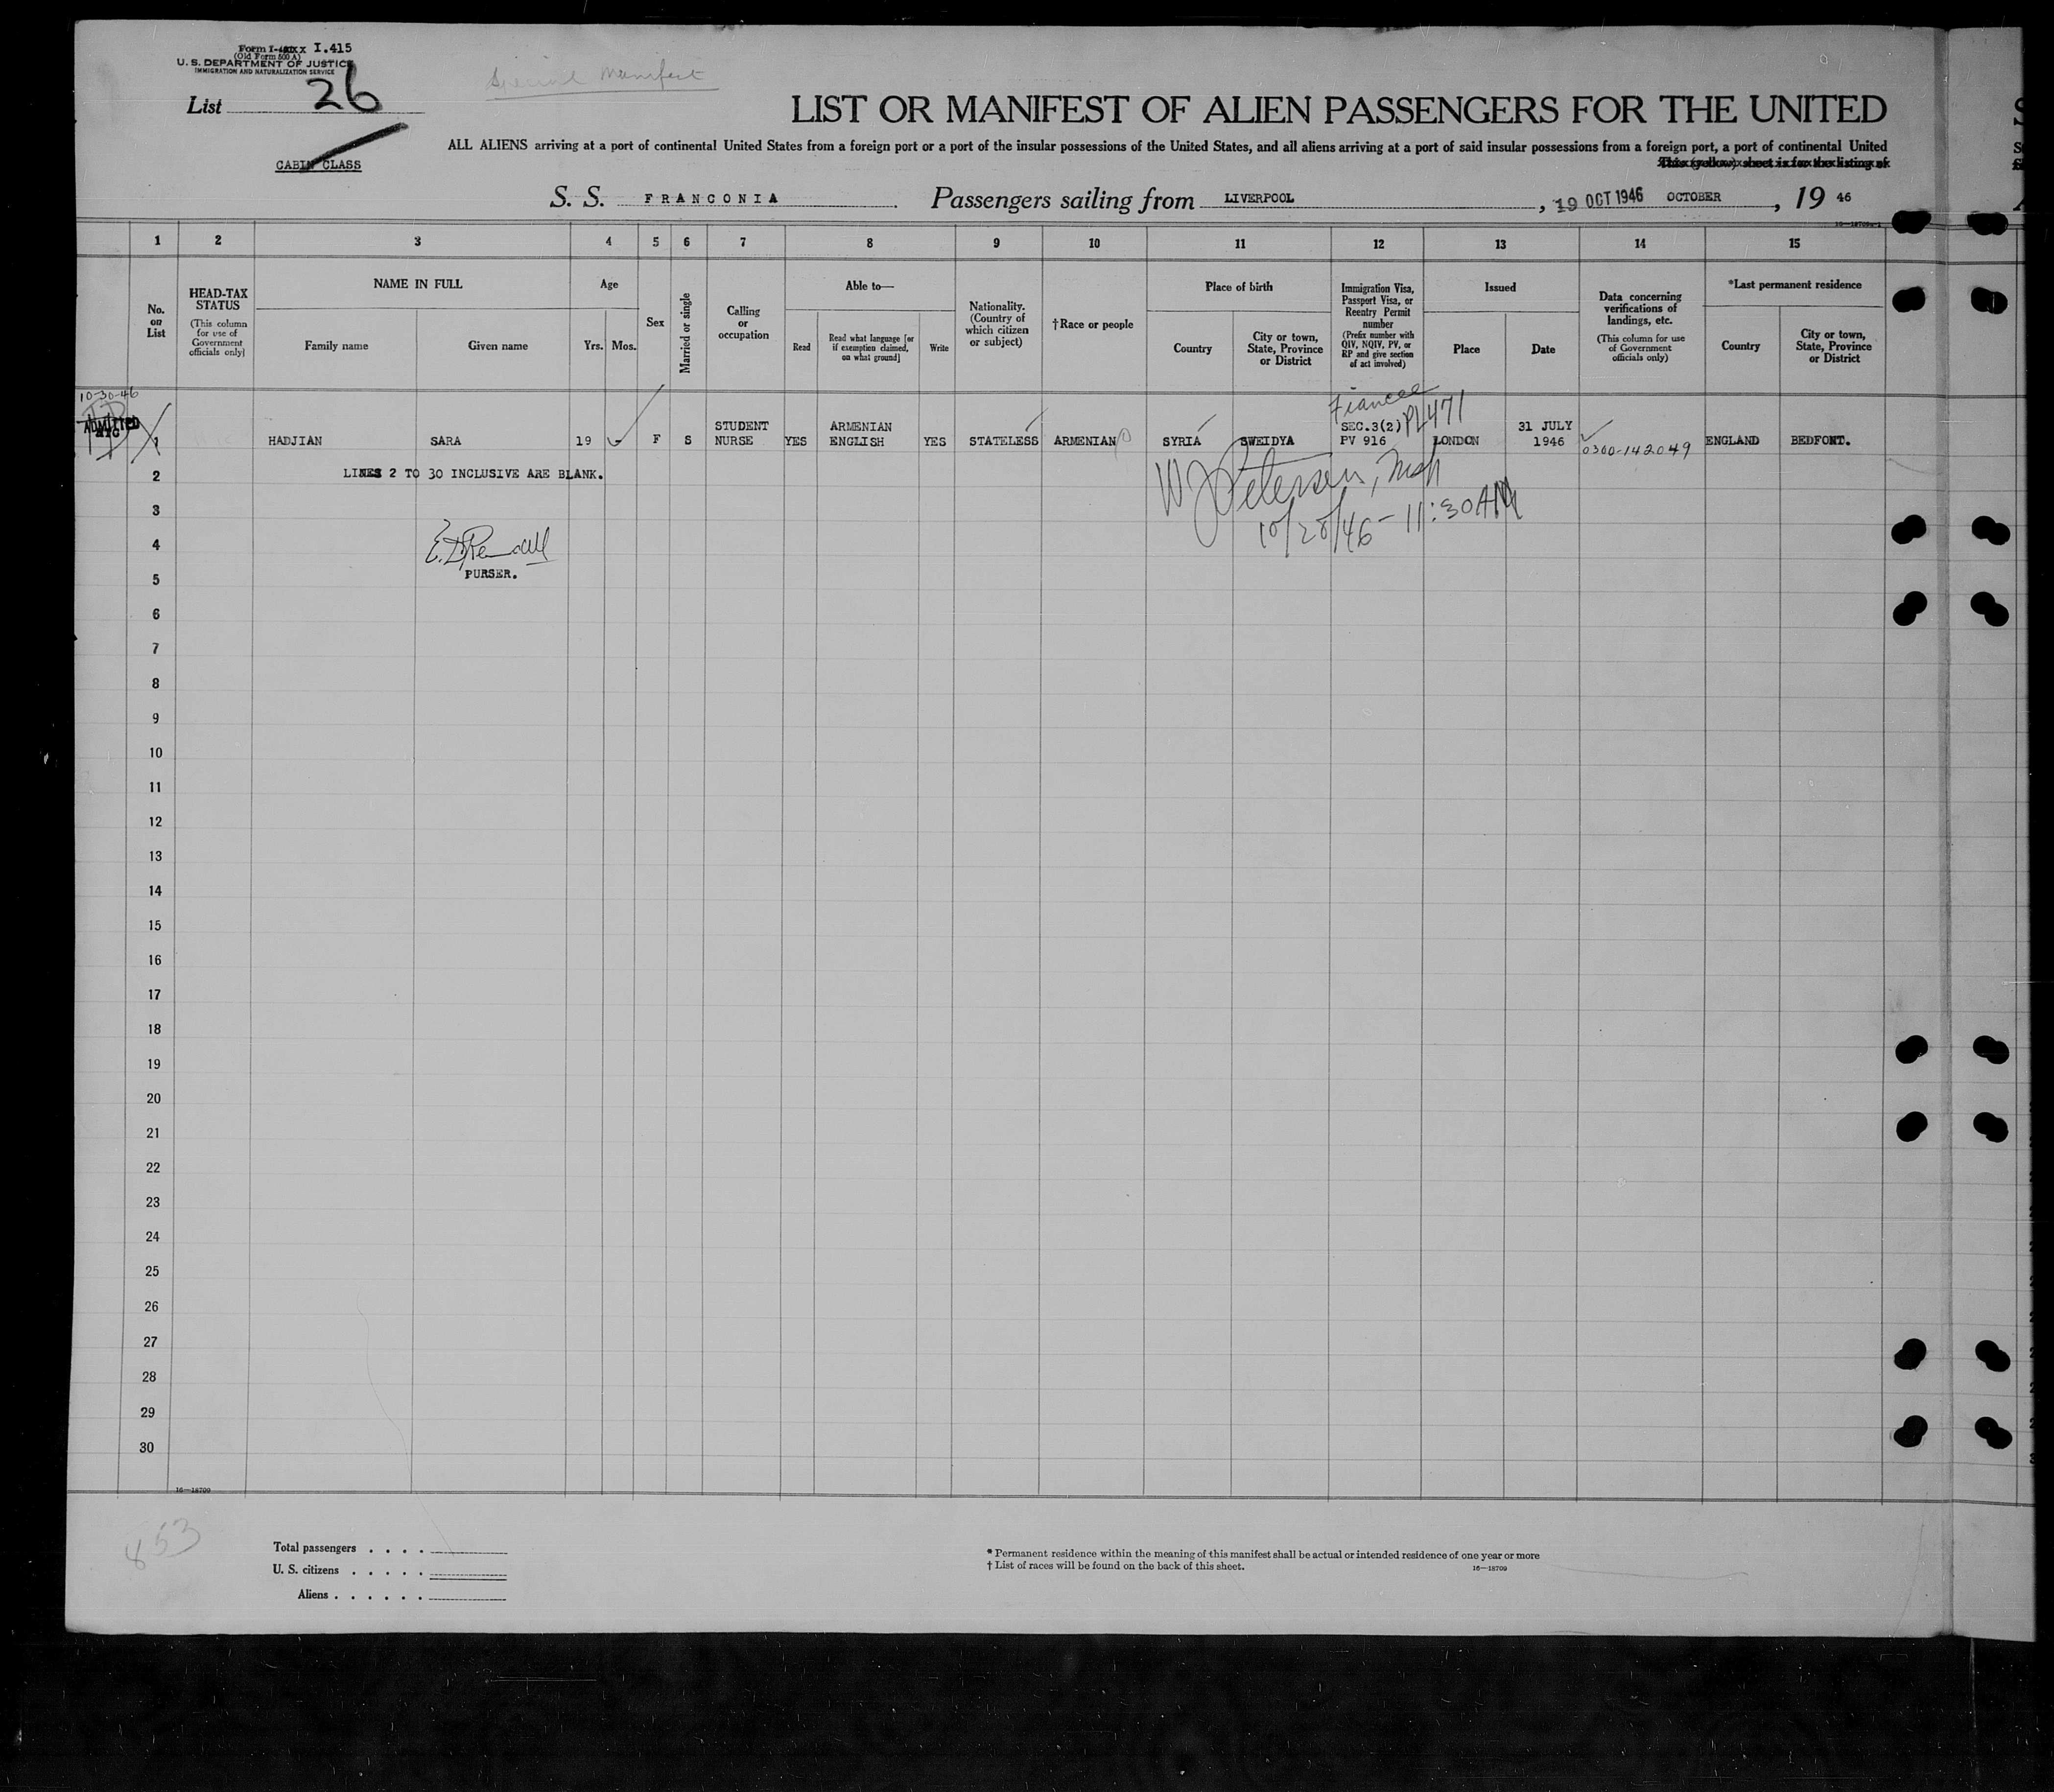 Form I-415
(Old Form 500 A)
U. S. DEPARTMENT OF JUSTICE
IMMIGRATION AND NATURALIZATION SERVICE
List 26
Special Manifest
CABIN CLASS
LIST OR MANIFEST OF ALIEN PASSENGERS FOR THE UNITED
ALL ALIENS arriving at a port of continental United States from a foreign port or a port of the insular possessions of the United States, and all aliens arriving at a port of said insular possessions from a foreign port, a port of continental United
This (yellow) sheet is for the listing of
S. S. FRANCONIA Passengers sailing from LIVERPOOL, 19 OCT 1946 OCTOBER, 19 46
1 2 3 4 5 6 7 8 9 10 11 12 13 14 15
No. on List
HEAD-TAX STATUS
(This column for use of Government officials only)
NAME IN FULL
Family name
Given name
Age
Yrs.
Mos.
Sex
Married or single
Calling or occupation
Able to—
Read
Read what language [or if exemption claimed, on what ground]
Write
Nationality. (Country of which citizen or subject)
†Race or people
Place of birth
Country
City or town, State, Province or District
Immigration Visa, Passport Visa, or Reentry Permit number
(Prefix number with QIV, NQIV, PV, or RP and give section of act involved)
Issued
Place
Date
Data concerning verifications of landings, etc.
(This column for use of Government officials only)
*Last permanent residence
Country
City or town, State, Province or District
10-30-46
ADMITTED
Fiancee
PL471
1 HADJIAN SARA 19 F S STUDENT NURSE YES ARMENIAN ENGLISH YES STATELESS ARMENIAN SYRIA SWEIDYA SEC.3(2) PV 916 LONDON 31 JULY 1946 0300-142049 ENGLAND BEDFONT.
2 LINES 2 TO 30 INCLUSIVE ARE BLANK.
W J Petersen, Insp
10/28/46 - 11:30AM
3
4
PURSER.
5
6
7
8
9
10
11
12
13
14
15
16
17
18
19
20
21
22
23
24
25
26
27
28
29
30
16—18709
853
Total passengers . . . .
U. S. citizens . . . . .
Aliens . . . . . .
* Permanent residence within the meaning of this manifest shall be actual or intended residence of one year or more
† List of races will be found on the back of this sheet.
16—18709